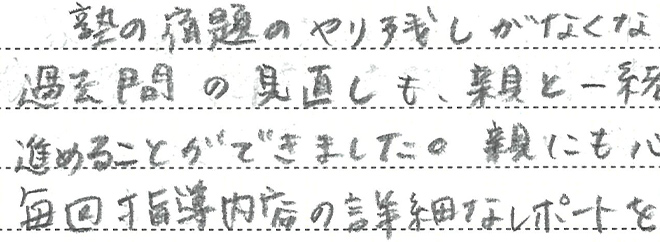 塾の宿題のやり残しがなくな
過去問の見直しも、親と一緒
進めることができました。親にも心
毎回指導内容の詳細なレポートを